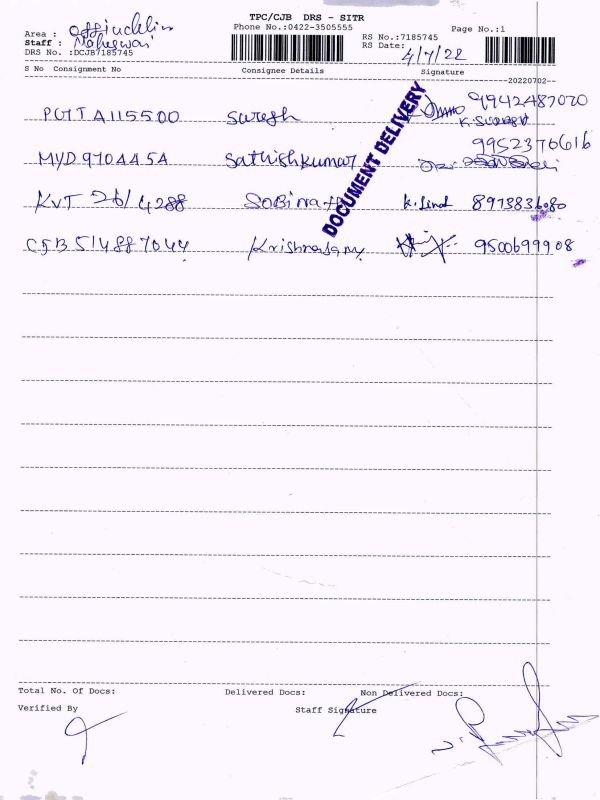 TPC/CJB DRS - SITR
Area :
Phone No.:0422-3505555
Page No.:1
Staff : Maheswari
RS No.:7185745
DRS No.:DCJB7185745
RS Date: 4/7/22
S No Consignment No Consignee Details Signature
--20220702--
DOCUMENT DELIVERY
9942487070
POTTA115500 Suresh K. SURESH
9952376616
MYD970445A Sathishkumar
KVT 26/4288 8973831080
CJB514887044 Krishnasamy 9500699908
Total No. Of Docs: Delivered Docs: Non Delivered Docs:
Verified By Staff Signature